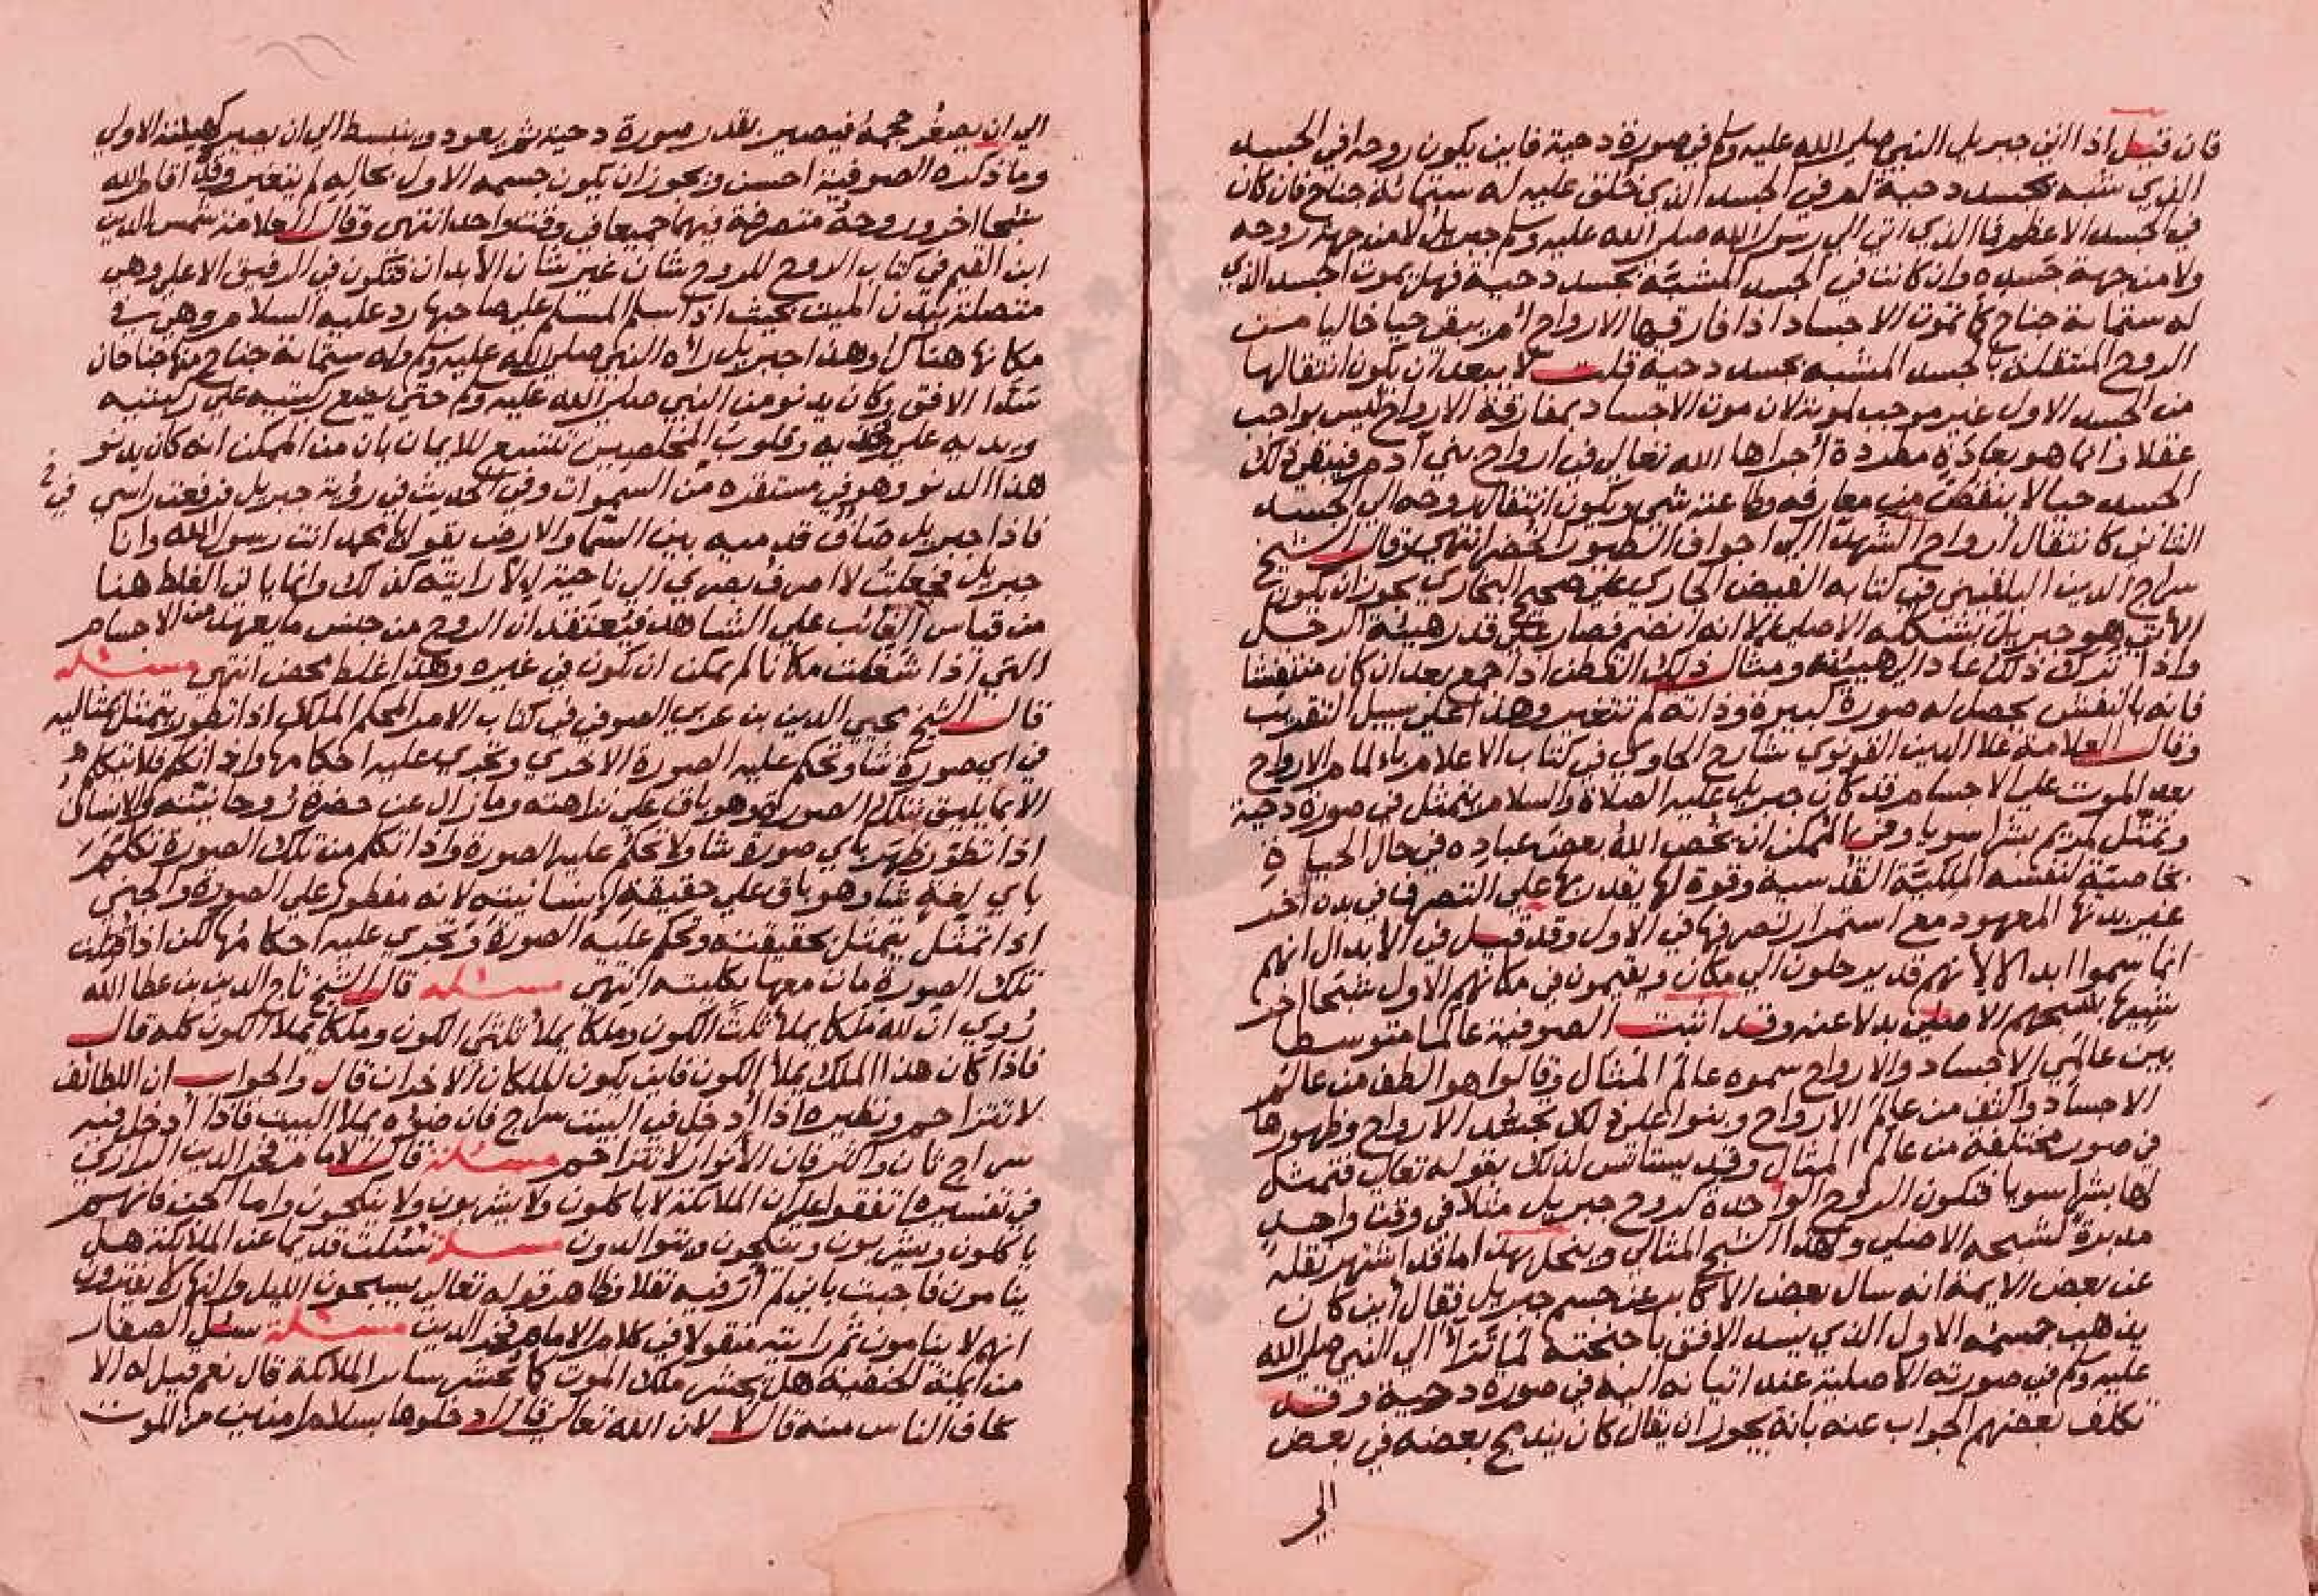 فان قيل اذا اتي جبريل النبي صلي الله عليه وسلم في صورة دحية فاين يكون روحه افي الجسد
الذي شبه بجسد دحية ام في الجسد الذي خلق عليه له ستماية جناح فان كان
في الجسد الاعظم فما الذي اتي الي رسول الله صلي الله عليه وسلم جبريل لا من جهة روحه
ولا من جهة جسده وان كانت في الجسد المشبه بجسد دحية فهل يموت الجسد الذي
له ستماية جناح كما تموت الاجساد اذا فارقها الارواح ام يبقي حيا خاليا من
الروح المنتقلة بالجسد المشبه بجسد دحية قلت لا يبعد ان يكون انتقالها
من الجسد الاول غير موجب لموته لان موت الاجساد بمفارقة الارواح ليس بواجب
عقلا وانما هو بعادة مطردة اجراها الله تعالي في ارواح بني آدم فيبقي ذلك
الجسد حيا لا ينقص من معارفه وطاعته شي ويكون انتقال روحه الي الجسد
الثاني كانتقال ارواح الشهدا الي اجواف الطيور الخضر انتهي وقال الشيخ
سراج الدين البلقيني في كتابه الفيض الجاري علي صحيح البخاري يجوز ان يكون
الآتي هو جبريل بشكله الاصلي الا انه انضم فصار علي قدر هيئة الرجل
واذا ترك ذلك عاد الي هيئته ومثال ذلك القطن اذا جمع بعد ان كان منتفشا
فانه بالنفش يحصل له صورة كبيرة وذاته لم تتغير وهذا علي سبيل التقريب
وقال العلامة علا الدين القونوي شارح الحاوي في كتاب الاعلام بالمام الارواح
بعد الموت علي الاجسام قد كان جبريل عليه الصلاة والسلام يتمثل في صورة دحية
وتمثل لمريم بشرا سويا وفي الممكن ان يخص الله بعض عباده في حال الحياة
بخاصية لنفسه الملكية القدسية وقوة لها يقدر بها علي التصرف في بدن اخر
غير بدنها المعهود مع استمرار تصرفها في الاول وقد قيل في الابدال انهم
انما سموا ابدالا لانهم قد يرحلون الي مكان ويقيمون في مكانهم الاول شبحا اخر
شبيها بشبحهم الاصلي بدلا عنه وقد اثبت الصوفية عالما متوسطا
بين عالمي الاجساد والارواح سموه عالم المثال وقالوا هو الطف من عالم
الاجساد واكثف من عالم الارواح وبنوا علي ذلك تجسد الارواح وظهورها
في صور مختلفة من عالم المثال وقد يستانس لذلك بقوله تعالي فتمثل
لها بشرا سويا فتكون الروح الواحدة كروح جبريل مثلا في وقت واحد
مدبرة لشبحه الاصلي ولهذا الشبح المثالي وينحل بهذا ما قد اشتهر نقله
عن بعض الايمة انه سال بعض الاكابر عن جسم جبريل فقال اين كان
يذهب جسمه الاول الذي يسد الافق باجنحته لما تراأ الي النبي صلي الله
عليه وسلم في صورته الاصلية عند اتيانه اليه في صورة دحية وقد
تكلف بعضهم الجواب عنه بانه يجوز ان يقال كان يندمج بعضه في بعض
الي
الي ان يصغر حجمه فيصير بقدر صورة دحية ثم يعود وينبسط الي ان يصير كهيئته الاولي
وما ذكره الصوفية احسن ويجوز ان يكون جسمه الاول بحاله لم يتغير وقد اقام الله
شبحا اخر وروحه متصرفة فيهما جميعا في وقت واحد انتهي وقال العلامة شمس الدين
ابن القيم في كتاب الروح للروح شان غير شان الأبدان فتكون في الرفيق الاعلي وهي
متصلة ببدن الميت بحيث اذا سلم المسلم علي صاحبها رد عليه السلام وهي في
مكانها هناك وهذا جبريل رآه النبي صلي الله عليه وسلم وله ستماية جناح منها جناحان
سدا الافق وكان يدنو من النبي صلي الله عليه وسلم حتي يضع ركبتيه علي ركبتيه
ويديه علي فخذيه وقلوب المخلصين تتسع للايمان بان من الممكن انه كان يدنو
هذا الدنو وهو في مستقره من السموات وفي الحديث في رؤية جبريل فرفعت راسي
فاذا جبريل صاف قدميه بين السما والارض يقول يا محمد انت رسول الله وانا
جبريل فجعلت لا اصرف بصري الي ناحية الا رايته كذلك وانما ياتي الغلط هنا
من قياس الغائب علي الشاهد فيعتقد ان الروح من جنس ما يعهد من الاجسام
التي اذا شغلت مكانا لم يمكن ان تكون في غيره وهذا غلط محض انتهي مسئلة
قال الشيخ محيي الدين بن عربي الصوفي في كتاب الامر المحكم الملك اذا تطور يتمثل بمثاليه
في اي صورة شا وتحكم عليه الصورة الاخري وتجري عليه احكامها واذا تكلم فلا يتكلم
الا بما يليق بتلك الصورة وهو باق علي نزاهته وما زال عن حضرة روحانيته والانسان
اذا تطور ظهر باي صورة شا ولا تحكم عليه الصورة واذا تكلم من تلك الصورة تكلم
باي لغة شا وهو باق علي حقيقة انسانيته لانه مفطور علي الصورة والجني
اذا تمثل يتمثل بحقيقته وتحكم عليه الصورة وتجري عليه احكامها لكن اذا قتلت
تلك الصورة مات معها بكليته انتهي مسئلة قال الشيخ تاج الدين بن عطا الله
روي ان لله ملكا يملأ ثلث الكون وملكا يملأ ثلثي الكون وملكا يملأ الكون كله قال
فاذا كان هذا الملك يملأ الكون فاين يكون الملكان الاخران قال والجواب ان اللطائف
لا تتزاحم ونظيره اذا أدخل في البيت سراج فان ضوءه يملأ البيت فاذا أدخل فيه
سراج ثان واكثر فان الأنوار لا تتزاحم مسئلة قال الامام فخر الدين الرازي
في تفسيره اتفقوا علي ان الملائكة لا ياكلون ولا يشربون ولا ينكحون واما الجن فانهم
ياكلون ويشربون وينكحون ويتوالدون مسئلة سئلت قديما عن الملائكة هل
ينامون فاجبت باني لم أر فيه نقلا وظاهر قوله تعالي يسبحون الليل والنهار لا يفترون
انهم لا ينامون ثم رايته منقولا في كلام الامام فخر الدين مسئلة سئل الصفار
من ايمة الحنفية هل يحشر ملك الموت كما تحشر ساير الملائكة قال نعم قيل له الا
يخاف الناس منه قال لا لان الله تعالي قال ادخلوها بسلام امنين من الموت